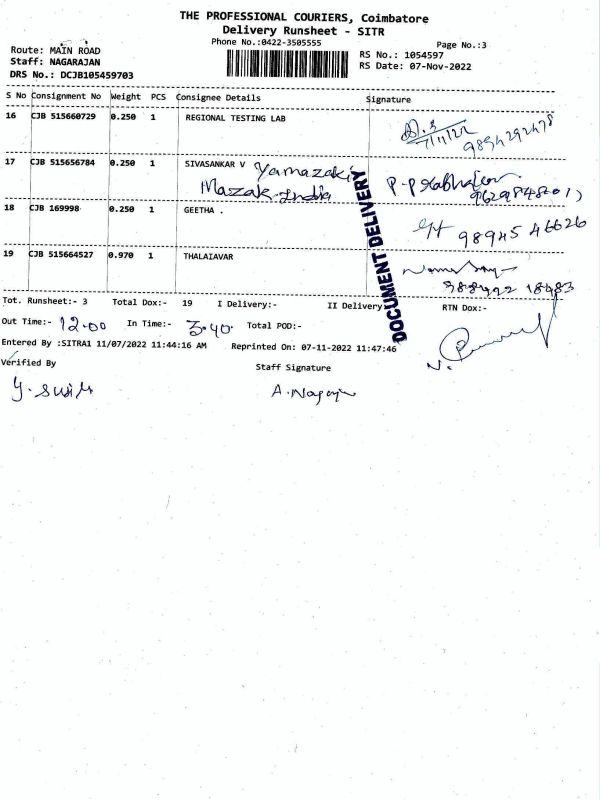 THE PROFESSIONAL COURIERS, Coimbatore
Delivery Runsheet - SITR
Phone No.:0422-3505555
Page No.:3
Route: MAIN ROAD
RS No.: 1054597
Staff: NAGARAJAN
RS Date: 07-Nov-2022
DRS No.: DCJB105459703
S No Consignment No Weight PCS Consignee Details Signature
16 CJB 515660729 0.250 1 REGIONAL TESTING LAB
7/11/22
9894292478
17 CJB 515656784 0.250 1 SIVASANKAR V Yamazaki
Mazak India
18 CJB 169998 0.250 1 GEETHA .
98945 46626
19 CJB 515664527 0.970 1 THALAIAVAR
DOCUMENT DELIVERY
Tot. Runsheet:- 3 Total Dox:- 19 I Delivery:- II Delivery RTN Dox:-
Out Time:- 12.00 In Time:- 3.40 Total POD:-
Entered By :SITRA1 11/07/2022 11:44:16 AM Reprinted On: 07-11-2022 11:47:46
Verified By Staff Signature